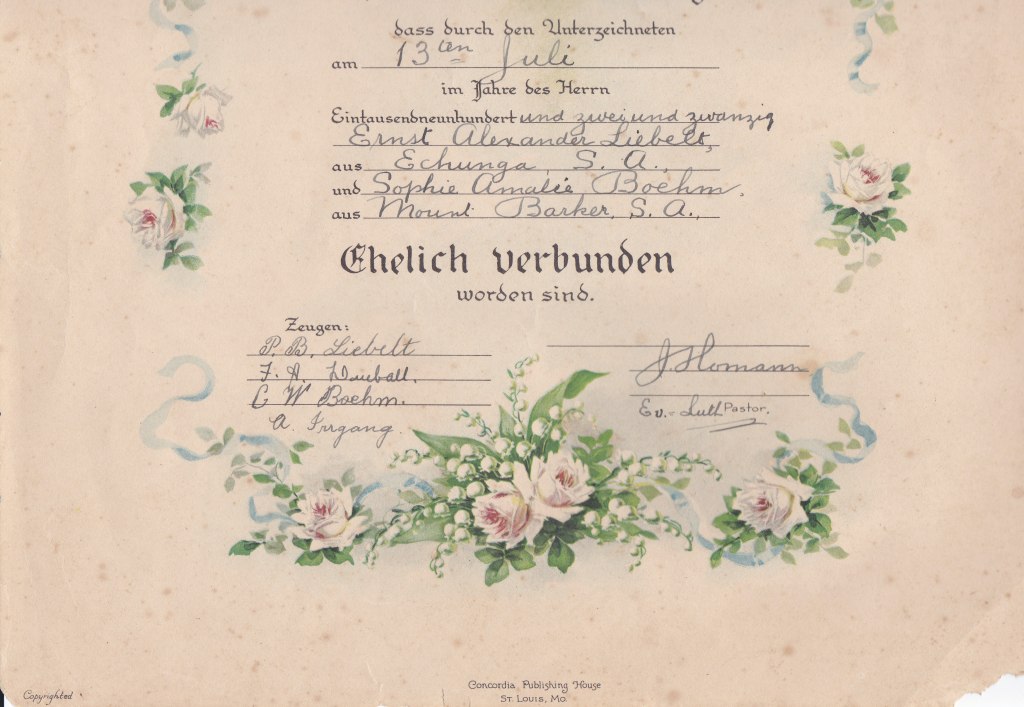 dass durch den Unterzeichneten
am 13ten Juli
im Jahre des Herrn
Eintausendneunhundert und zwei und zwanzig
Ernst Alexander Liebelt,
aus Echunga, S. A.
und Sophie Amalie Boehm.
aus Mount Barker, S. A.,
Ehelich verbunden
worden sind.
Zeugen:
P. B. Liebelt
F. A.
C W Boehm.
A. Irrgang.
J. Homann
Ev.-Luth Pastor.
Copyrighted
Concordia Publishing House
St. Louis, Mo.